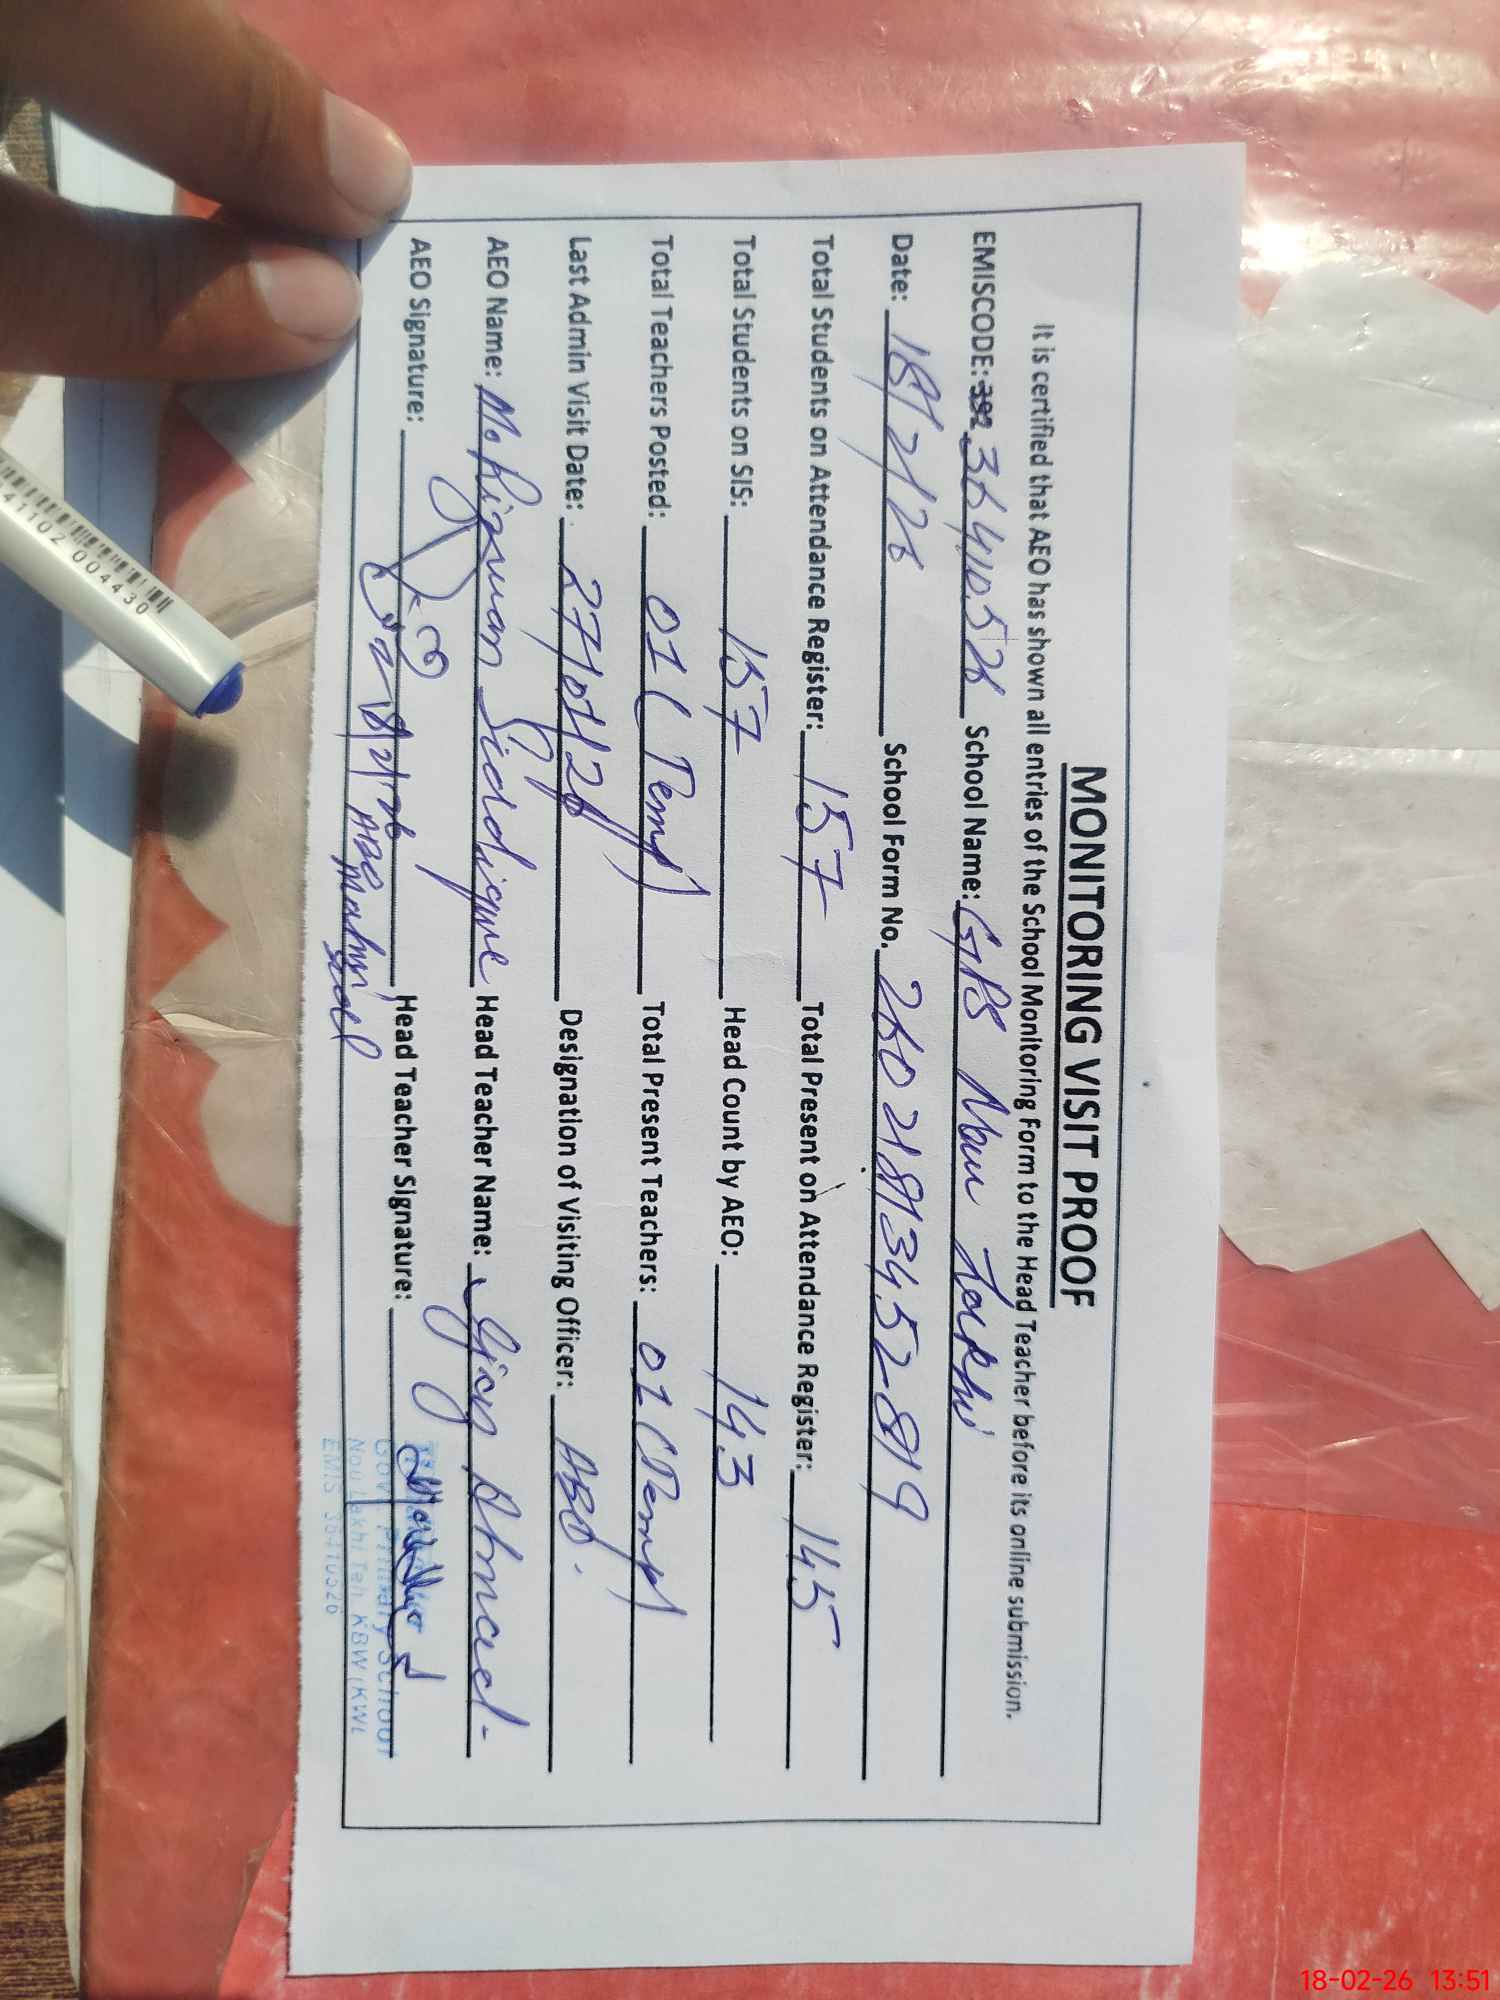 MONITORING VISIT PROOF
It is certified that AEO has shown all entries of the School Monitoring Form to the Head Teacher before its online submission.
EMISCODE: 392 36410526 School Name: GPS Nou Lakhi
Date: 18/2/26 School Form No. 26021813452819
Total Students on Attendance Register: 157 Total Present on Attendance Register: 145
Total Students on SIS: 157 Head Count by AEO: 143
Total Teachers Posted: 01 (Temp) Total Present Teachers: 01 (Temp)
Last Admin Visit Date: 27/01/26 Designation of Visiting Officer: AEO.
AEO Name: M. Rizwan Siddique Head Teacher Name: Ahmad.
AEO Signature: Head Teacher Signature:
18/2/26
AEO
Govt Primary School
Nou Lakhi Teh. KBW (KWL
EMIS 36410526
041102 004430
18-02-26 13:51